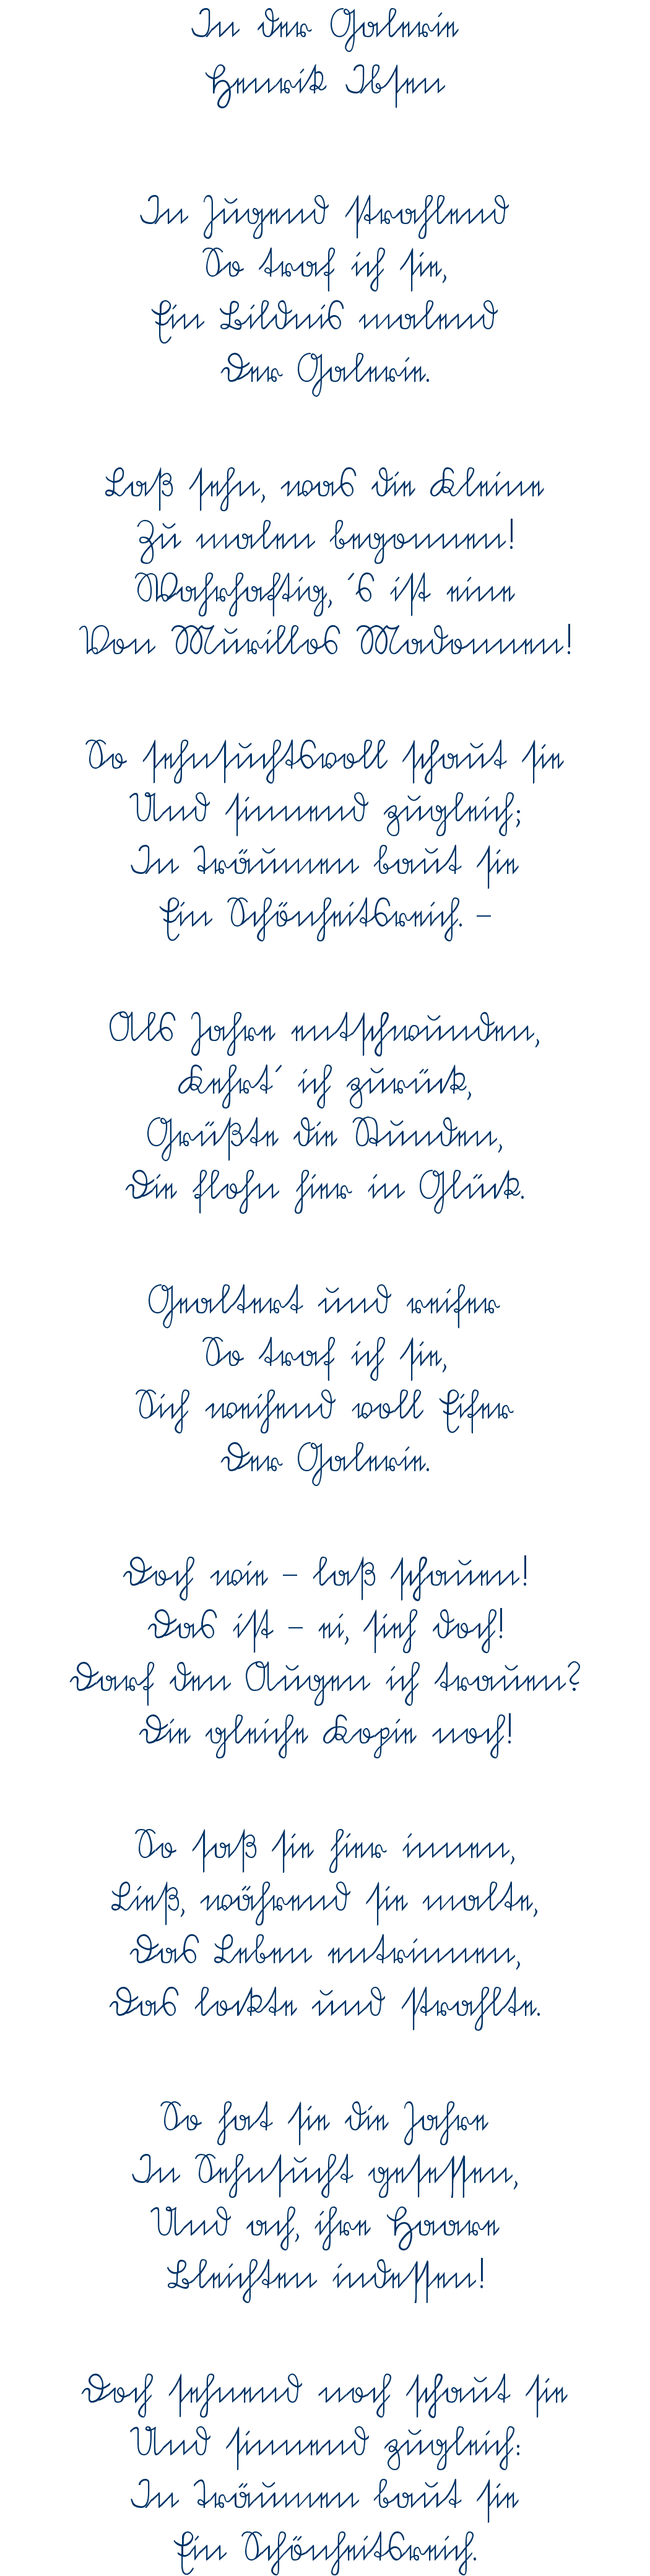 In der Galerie
Henrik Ibsen
In Jugend strahlend
So traf ich sie,
Ein Bildnis malend
Der Galerie.
Laß sehn, was die Kleine
Zu malen begonnen!
Wahrhaftig, ´s ist eine
Von Murillos Madonnen!
So sehnsuchtsvoll schaut sie
Und sinnend zugleich;
In Träumen baut sie
Ein Schönheitsreich. –
Als Jahre entschwunden,
Kehrt´ ich zurück,
Grüßte die Stunden,
Die flohn hier in Glück.
Gealtert und reifer
So traf ich sie,
Sich weihend voll Eifer
Der Galerie.
Doch wie – laß schauen!
Das ist – ei, sieh doch!
Darf den Augen ich trauen?
Die gleiche Kopie noch!
So saß sie hier innen,
Ließ, während sie malte,
Das Leben entrinnen,
Das lockte und strahlte.
So hat sie die Jahre
In Sehnsucht gesessen,
Und ach, ihre Haare
Bleichten indessen!
Doch sehnend noch schaut sie
Und sinnend zugleich:
In Träumen baut sie
Ein Schönheitsreich.